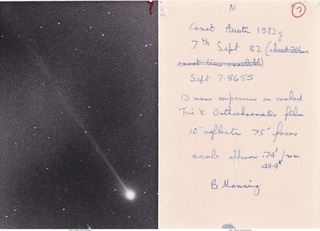 N
3
Comet Austin 1982g
7th Sept 82 (about 20h
exact time available)
Sept 7.8655
13 mins exposure on cooled
Tri X Orthochromatic film
10" reflector 75" focus
scale 
.74'/mm
44.4"
B Manning